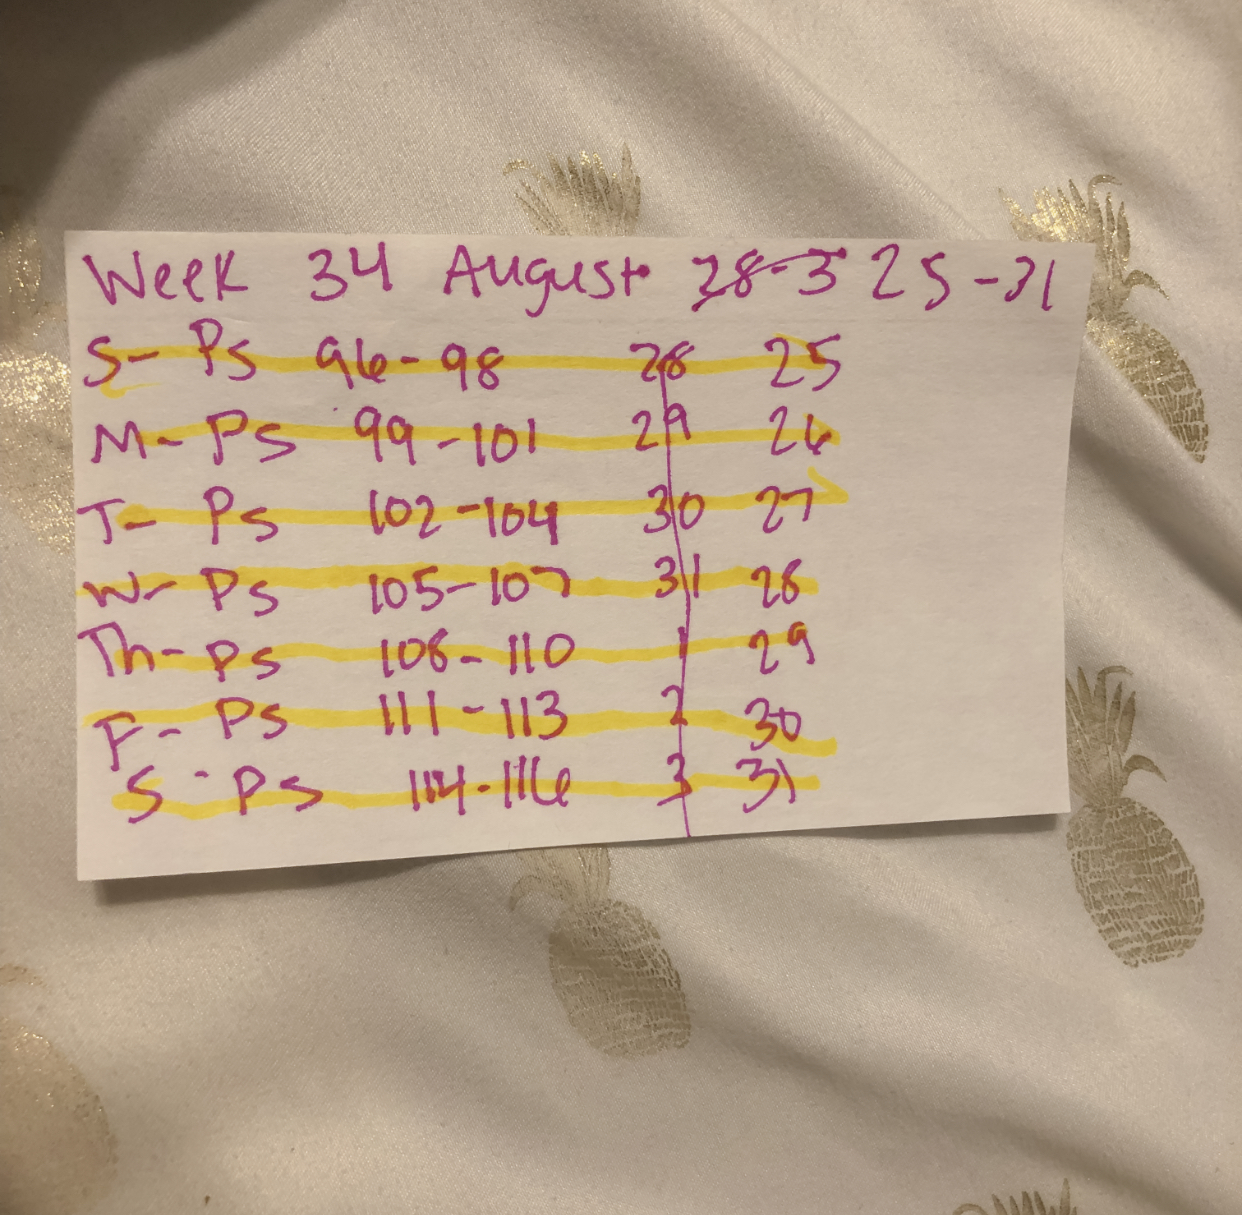 Week 34 August 28-3 25-31
S- Ps 96-98 28 25
M- Ps 99-101 29 26
T- Ps 102-104 30 27
W- Ps 105-107 31 28
Th- Ps 108-110 1 29
F- Ps 111-113 2 30
S - Ps 114-116 3 31